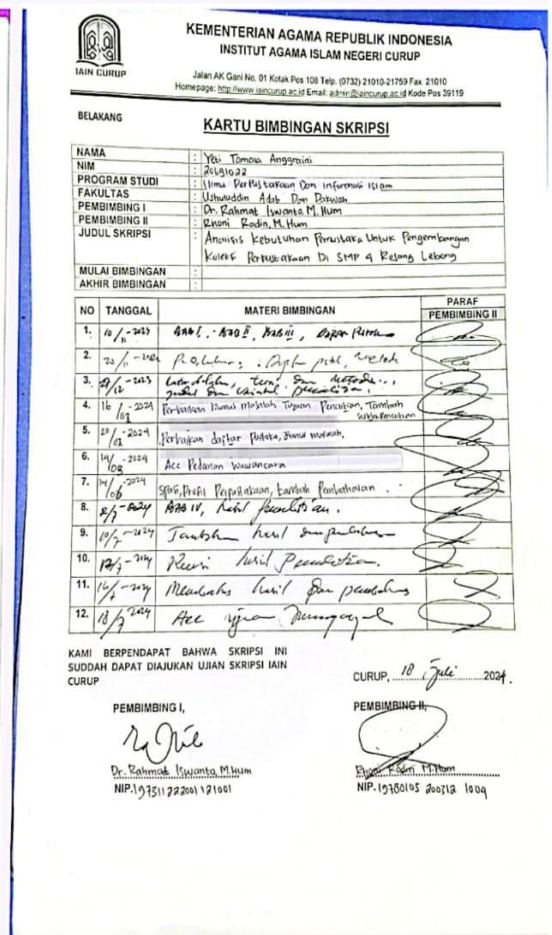 KEMENTERIAN AGAMA REPUBLIK INDONESIA
INSTITUT AGAMA ISLAM NEGERI CURUP
IAIN CURUP
Jalan AK Gani No. 01 Kotak Pos 108 Telp. (0732) 21010-21759 Fax. 21010
Homepage: http://www.iaincurup.ac.id Email: admin@iaincurup.ac.id Kode Pos 39119
BELAKANG
KARTU BIMBINGAN SKRIPSI
NAMA : Yeti Tamala Anggraini
NIM : 20691022
PROGRAM STUDI : Ilmu Perpustakaan Dan Informasi Islam
FAKULTAS : Ushuluddin Adab Dan Dakwah
PEMBIMBING I : Dr. Rahmat Iswanto, M. Hum
PEMBIMBING II : Rhoni Rodin, M. Hum
JUDUL SKRIPSI : Analisis Kebutuhan Pemustaka Untuk Pengembangan
Koleksi Perpustakaan Di SMP 4 Rejang Lebong
MULAI BIMBINGAN :
AKHIR BIMBINGAN :
NO TANGGAL MATERI BIMBINGAN PARAF
PEMBIMBING II
1. 10/11-2023 BAB I, BAB II, BAB III,
2. 20/11
3. 2023
4. 16/ -2024 Perbaikan Rumus Masalah Tujuan Penelitian, Tambah
5. 20/ -2024 Perbaikan daftar Pustaka,
6. 14/03 -2024 Acc Pedoman Wawancara
7. 14/06 -2024 Spasi, Profil Perpustakaan, tambah Pembahasan.
8. /7-2024 BAB IV, hasil penelitian.
9. 10/7-2024 Tambah hasil
10. /7-2024 Revisi hasil Penelitian.
11. 16/7-2024 hasil dan
12. 18/7 2024 Acc ujian
KAMI BERPENDAPAT BAHWA SKRIPSI INI
SUDDAH DAPAT DIAJUKAN UJIAN SKRIPSI IAIN
CURUP
CURUP, 18 Juli 2024.
PEMBIMBING I, PEMBIMBING II,
Dr. Rahmat Iswanto M.Hum Rhoni Rodin M.Hum
NIP. 197311222001121001 NIP. 19780105 200312 1004